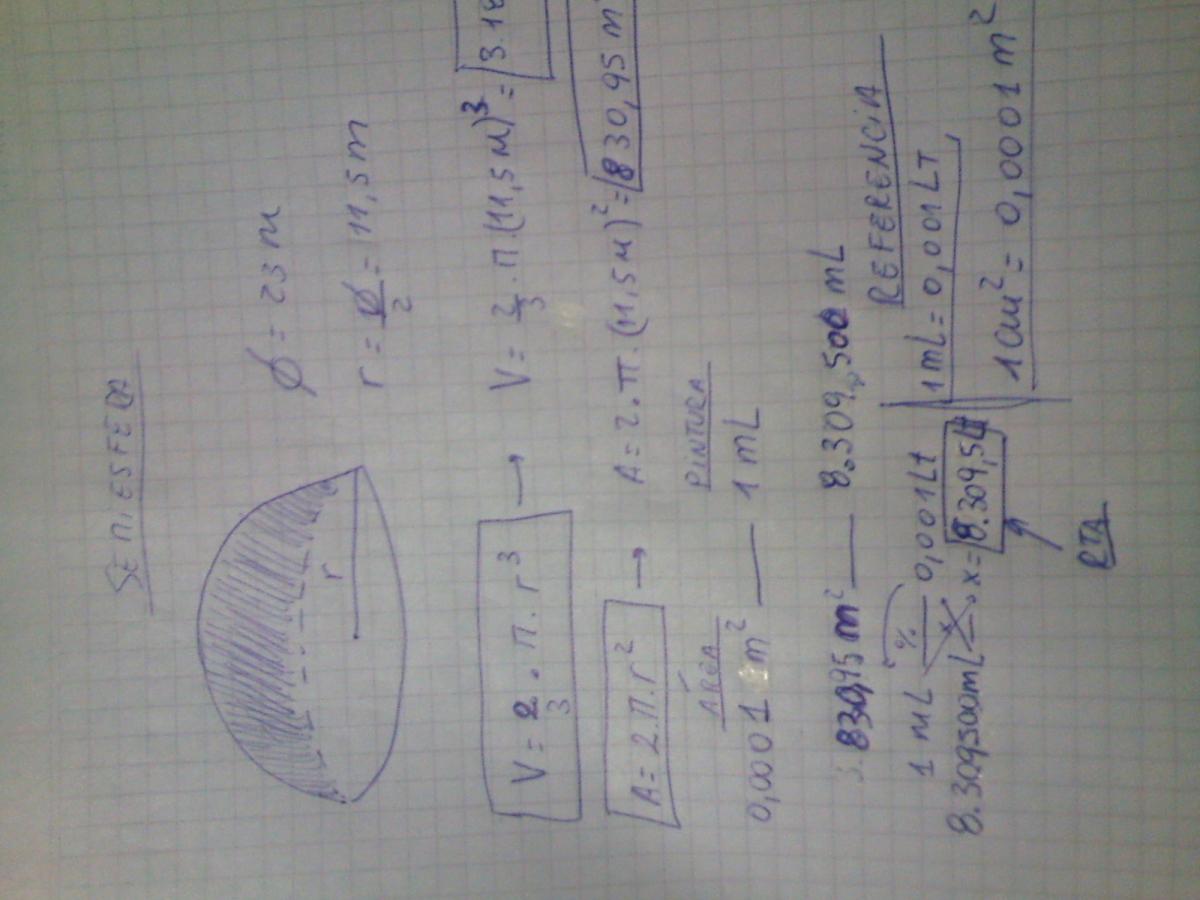 SEMIESFERA
r
Ø = 23 m
r = Ø/2 = 11,5 m
V = 2/3 . π . r³ → V = 2/3 . π . (11,5 m)³ = 3.18
A = 2 . π . r² → A = 2 . π . (11,5 m)² = 830,95 m
ÁREA PINTURA
0,0001 m² — 1 mL
830,95 m² — 8.309,500 mL
1 mL % 0,001 Lt
8.309500mL x = 8.309,5 Lt
RTA
REFERENCIA
1 mL = 0,001 LT
1 cm² = 0,0001 m²